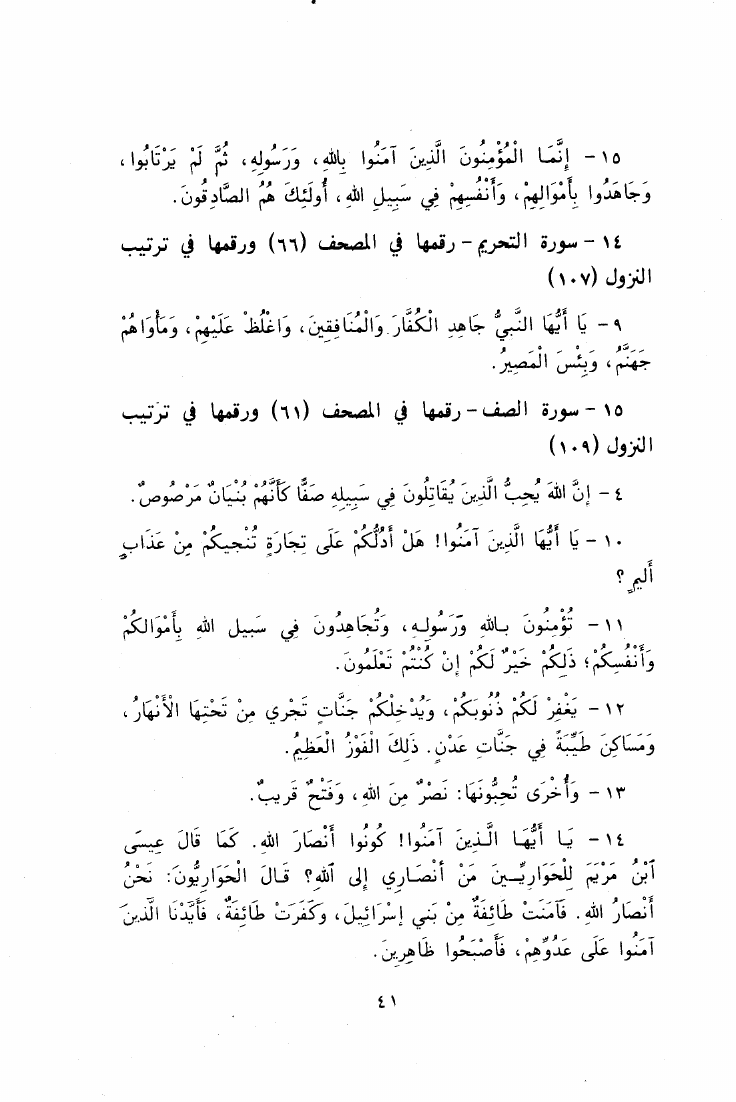 ١٥ - إِنَّمَا الْمُؤْمِنُونَ الَّذِينَ آمَنُوا بِاللهِ، وَرَسُولِهِ، ثُمَّ لَمْ يَرْتَابُوا،
وَجَاهَدُوا بِأَمْوَالِهِمْ، وَأَنْفُسِهِمْ فِي سَبِيلِ اللهِ، أُولَئِكَ هُمُ الصَّادِقُونَ.
١٤ - سورة التحريم - رقمها في المصحف (٦٦) ورقمها في ترتيب
النزول (١٠٧)
٩ - يَا أَيُّهَا النَّبِيُّ جَاهِدِ الْكُفَّارَ وَالْمُنَافِقِينَ، وَاغْلُظْ عَلَيْهِمْ، وَمَأْوَاهُمْ
جَهَنَّمُ، وَبِئْسَ الْمَصِيرُ.
١٥ - سورة الصف - رقمها في المصحف (٦١) ورقمها في ترتيب
النزول (١٠٩)
٤ - إِنَّ اللهَ يُحِبُّ الَّذِينَ يُقَاتِلُونَ فِي سَبِيلِهِ صَفًّا كَأَنَّهُمْ بُنْيَانٌ مَرْصُوصٌ.
١٠ - يَا أَيُّهَا الَّذِينَ آمَنُوا! هَلْ أَدُلُّكُمْ عَلَى تِجَارَةٍ تُنْجِيكُمْ مِنْ عَذَابٍ
أَلِيمٍ؟
١١ - تُؤْمِنُونَ بِاللهِ وَرَسُولِهِ، وَتُجَاهِدُونَ فِي سَبِيلِ اللهِ بِأَمْوَالِكُمْ
وَأَنْفُسِكُمْ؛ ذَلِكُمْ خَيْرٌ لَكُمْ إِنْ كُنْتُمْ تَعْلَمُونَ.
١٢ - يَغْفِرْ لَكُمْ ذُنُوبَكُمْ، وَيُدْخِلْكُمْ جَنَّاتٍ تَجْرِي مِنْ تَحْتِهَا الْأَنْهَارُ،
وَمَسَاكِنَ طَيِّبَةً فِي جَنَّاتِ عَدْنٍ. ذَلِكَ الْفَوْزُ الْعَظِيمُ.
١٣ - وَأُخْرَى تُحِبُّونَهَا: نَصْرٌ مِنَ اللهِ، وَفَتْحٌ قَرِيبٌ.
١٤ - يَا أَيُّهَا الَّذِينَ آمَنُوا! كُونُوا أَنْصَارَ اللهِ. كَمَا قَالَ عِيسَى
ابْنُ مَرْيَمَ لِلْحَوَارِيِّينَ مَنْ أَنْصَارِي إِلَى اللهِ؟ قَالَ الْحَوَارِيُّونَ: نَحْنُ
أَنْصَارُ اللهِ. فَآمَنَتْ طَائِفَةٌ مِنْ بَنِي إِسْرَائِيلَ، وَكَفَرَتْ طَائِفَةٌ، فَأَيَّدْنَا الَّذِينَ
آمَنُوا عَلَى عَدُوِّهِمْ، فَأَصْبَحُوا ظَاهِرِينَ.
٤١